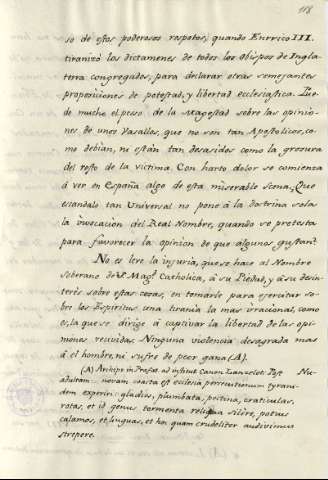 118
so de estos poderosos respetos, quando Enrrico III.
tiranizó los dictamenes de todos los Obispos de Ingla-
terra congregados, para declarar otras semejantes
proposiciones de potestad, y libertad ecclesiastica. Pue-
de mucho el peso de la Magestad sobre las opinio-
nes de unos Vasallos, que no son tan Apostolicos, co-
mo debian, ni están tan desasidos como la grosura
del resto de la victima. Con harto dolor se comienza
á ver en España algo de esta miserable Que
escandalo tan Universal no pone á la doctrina sola
la invocacion del Real Nombre, quando se pretesta
para favorecer la opinion de que algunos gustan?
No es leve la injuria, que se hace al Nombre
Soberano de V. Magd. Catholica, á su Piedad, y á su desin-
terés sobre estas cosas, en tomarle para exercitar so-
bre los Espiritus una tirania la mas irracional, como
es, la que se dirige á captivar la libertad de las opi-
niones recividas. Ninguna violencia desagrada mas
á el hombre, ni sufre de peor gana (A).
(A) in Prefat. ad Post Nu-
novam coacta est ecclesia persecutionum tyrani-
dem experiri: gladii, plumbata, pectina, craticulas,
rotas, et id genus tormenta silere, potius
calamos, et linguas, et hoc quam crudeliter audivimus
strepere.